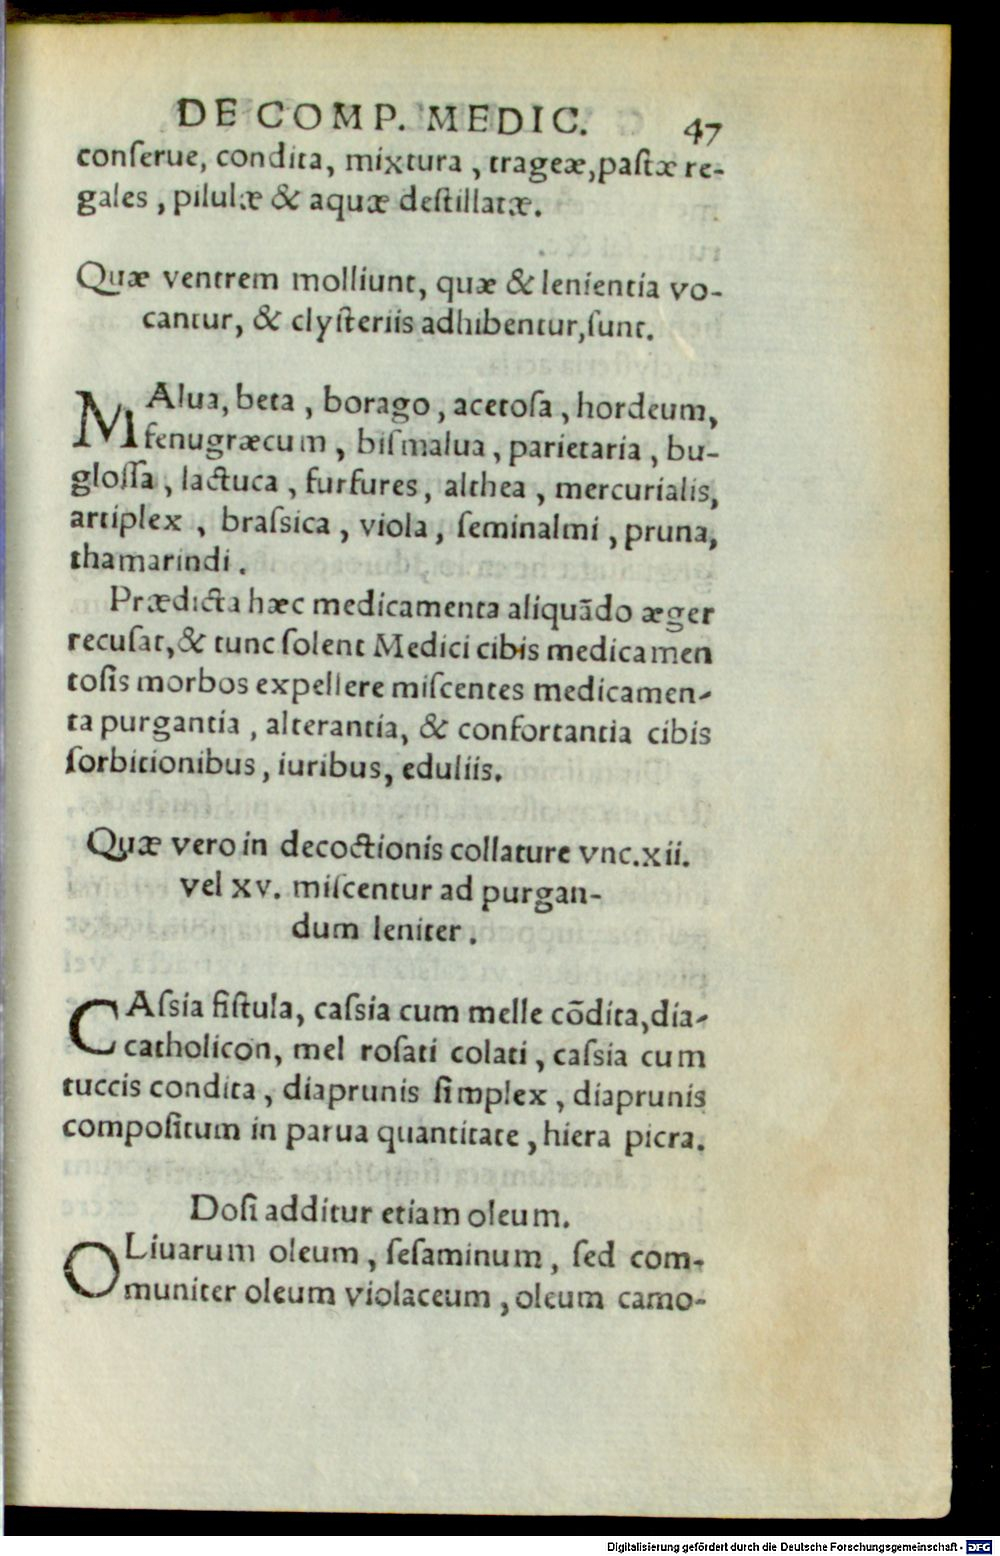 DE COMP. MEDIC. 47
conſerue, condita, mixtura, trageæ, paſtæ re-
gales, pilulæ & aquæ deſtillatæ.
Quæ ventrem molliunt, quæ & lenientia vo-
cantur, & clyſteriis adhibentur, ſunt.
MAlua, beta, borago, acetoſa, hordeum,
fenugræcum, biſmalua, parietaria, bu-
gloſſa, lactuca, furfures, althea, mercurialis,
artiplex, braſsica, viola, ſeminalmi, pruna,
thamarindi.
Prædicta hæc medicamenta aliquãdo æger
recuſat, & tunc ſolent Medici cibis medicamen
toſis morbos expellere miſcentes medicamen-
ta purgantia, alterantia, & confortantia cibis
ſorbitionibus, iuribus, eduliis.
Quæ vero in decoctionis collature vnc.xii.
vel xv. miſcentur ad purgan-
dum leniter.
CAſsia fiſtula, caſsia cum melle cõdita, dia-
catholicon, mel roſati colati, caſsia cum
tuccis condita, diaprunis ſimplex, diaprunis
compoſitum in parua quantitate, hiera picra.
Doſi additur etiam oleum.
OLiuarum oleum, ſeſaminum, ſed com-
muniter oleum violaceum, oleum camo-
Digitalisierung gefördert durch die Deutsche Forschungsgemeinschaft - DFG